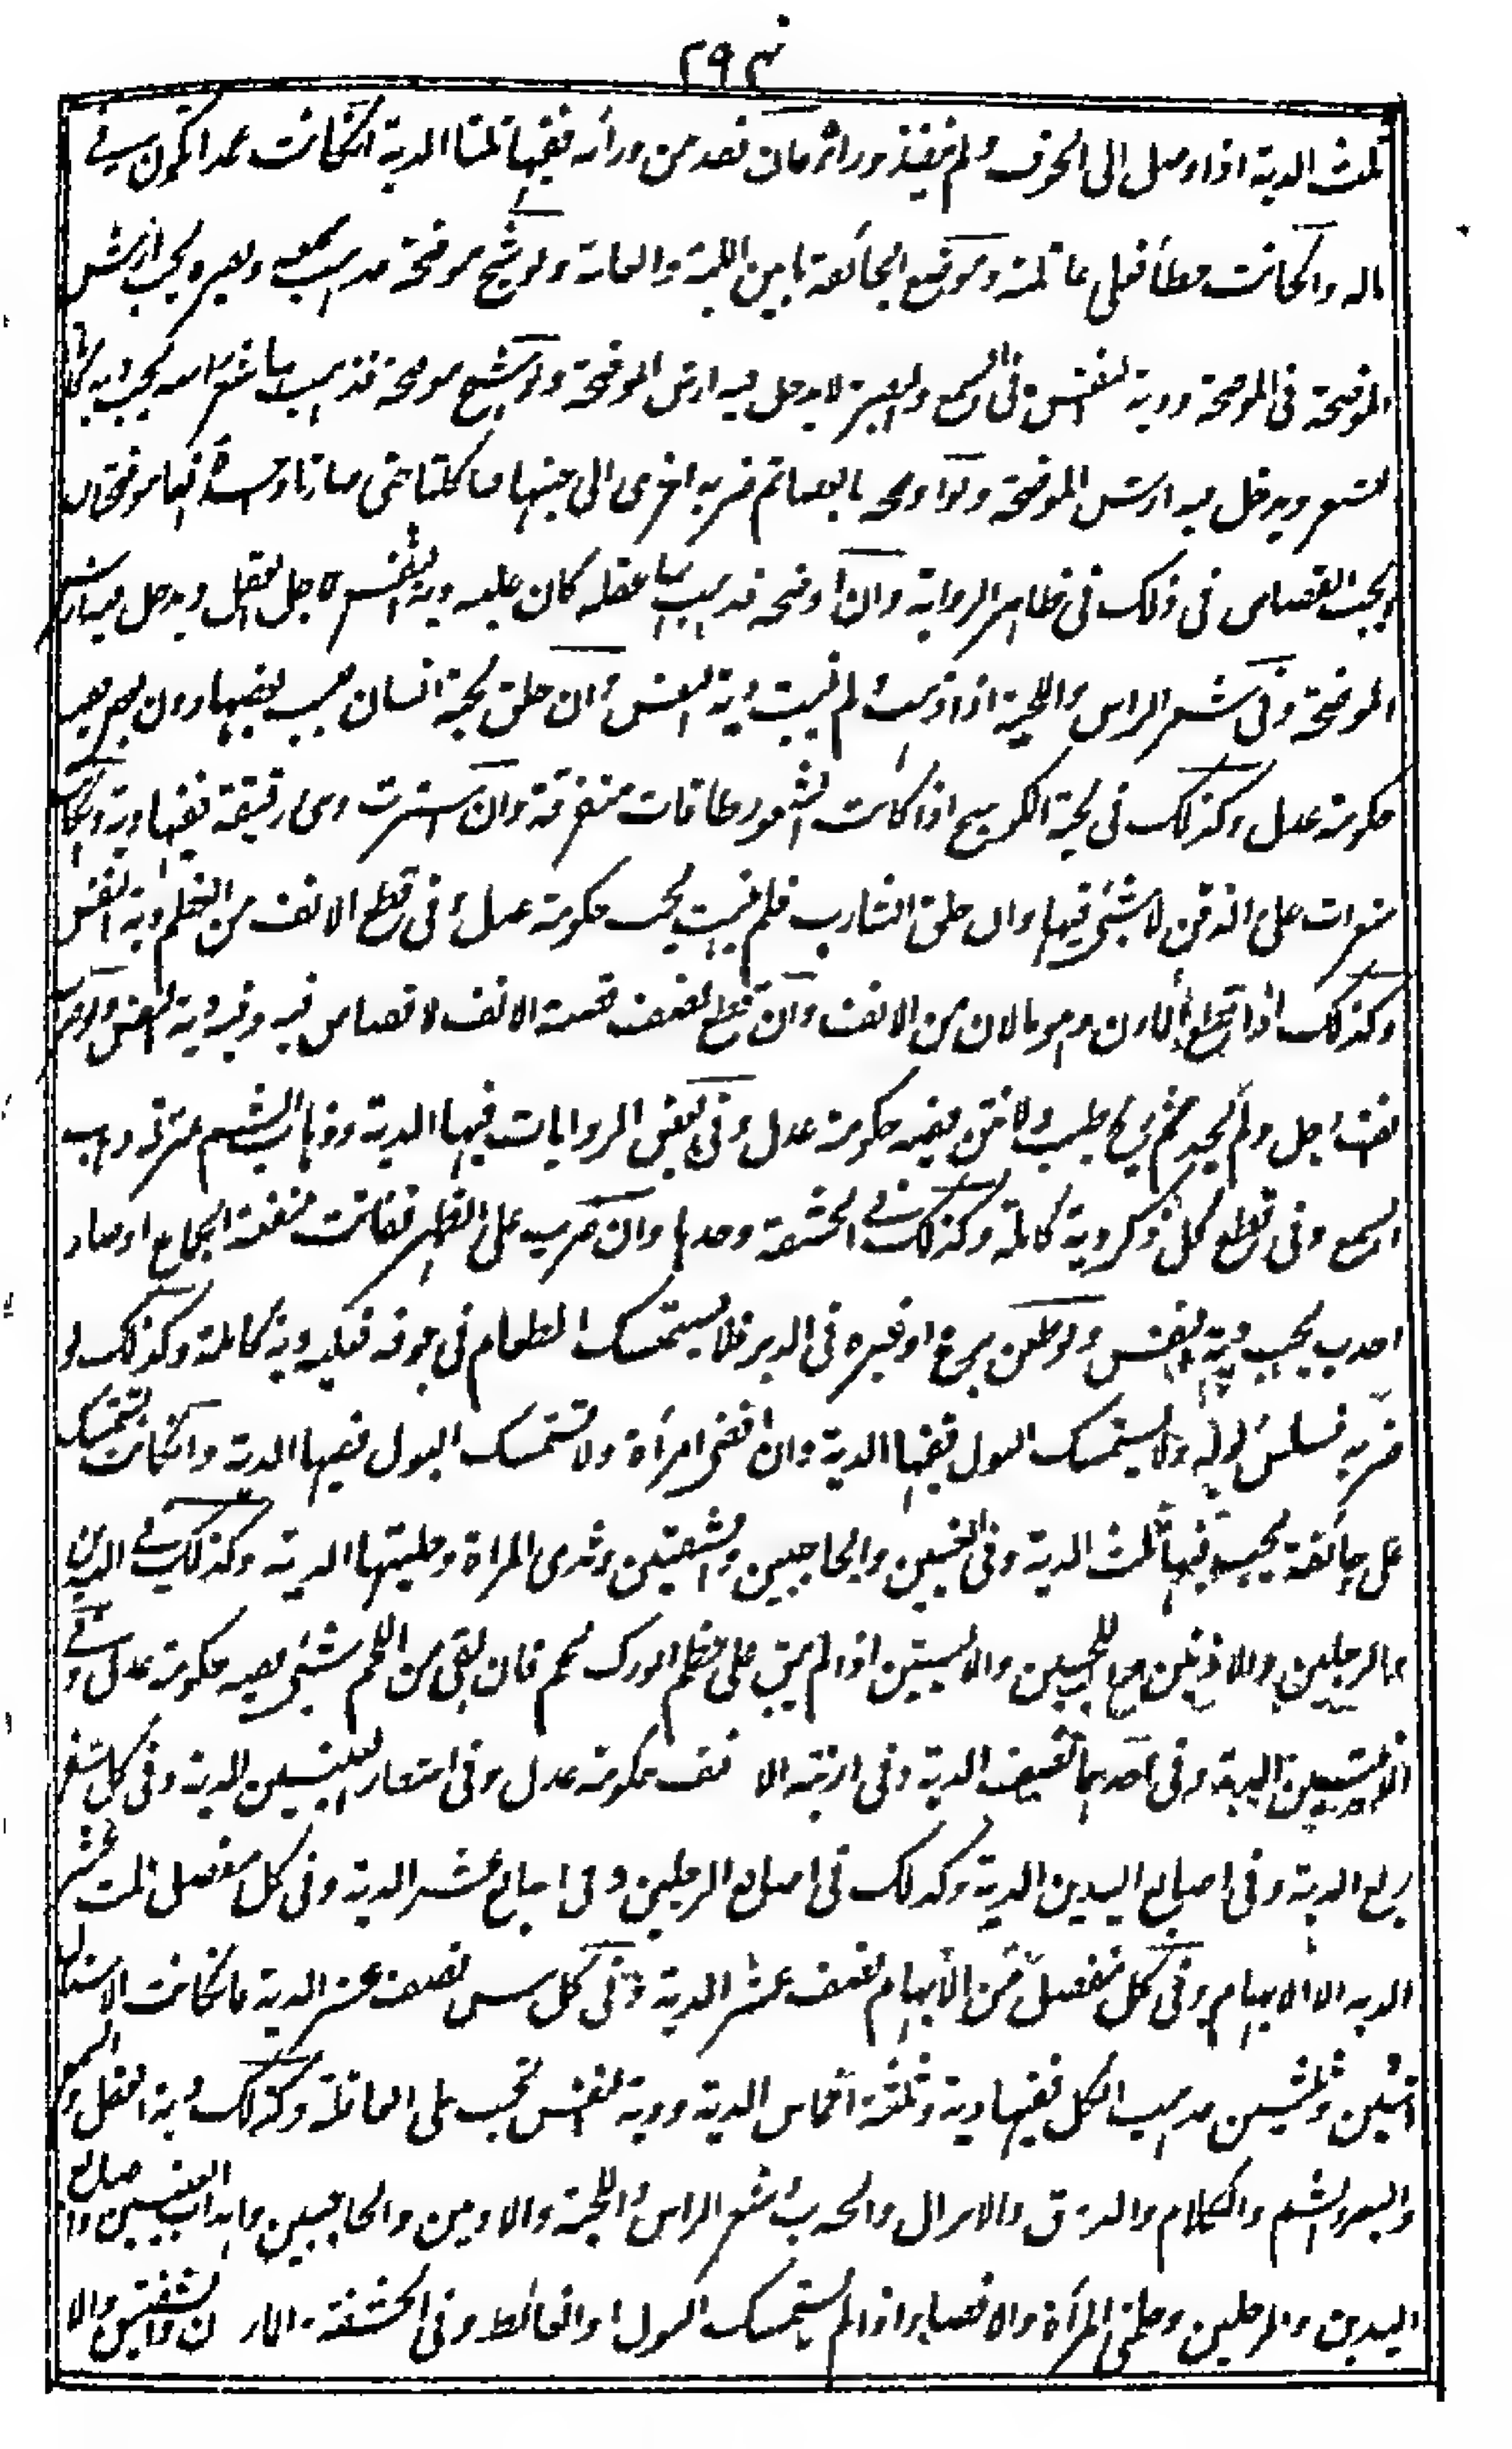 ٢٩٣
ثلث الدية اذا وصل الى الجوف ولم ينفذ وراءه فان نفذ من ورائه ففيها ثلثا الدية ان كانت عمدا تكون في
ماله وان كانت خطأ فعلى عاقلته وموضع الجائفة ما بين اللبة والعانة ولو شج موضحة فذهب سمعه وبصره يجب ارش
الموضحة في الموضحة ودية النفس في السمع والبصر لا يدخل فيه ارش الموضحة ولو شج موضحة فذهب بها شعر راسه يجب دية
الشعر ويدخل فيه ارش الموضحة ولو اوضحه بالعصا ثم ضربه اخرى الى جنبها فتاكلتا حتى صارتا واحدة فهما موضحتان
ويجب القصاص في ذلك في ظاهر الرواية وان اوضحه فذهب بها عقله كان عليه دية النفس لاجل العقل ويدخل فيه ارش
الموضحة وفي شعر الراس واللحية اذا ذهب ولم ينبت دية النفس وان حلق لحية انسان فنبت بعضها دون بعض ففيه
حكومة عدل وكذلك في لحية الكوسج اذا كانت الشعور طاقات متفرقة وان استرت وهي رقيقة ففيها دية وان كان
شعرات على الذقن لا شئ فيها وان حلق الشارب فلم ينبت يجب حكومة عدل وفي قطع الانف من العظم دية النفس
وكذلك اذا قطع المارن وهو ما لان من الانف وان قطع نصف قصبة الانف لا قصاص فيه وفيه دية النفس ولو ضرب
انف رجل ولم يجد شم ريح طيب ولا نتن ففيه حكومة عدل وفي بعض الروايات فيها الدية وذهاب الشم بمنزلة ذهاب
السمع وفي قطع كل ذكر دية كاملة وكذلك في الحشفة وحدها وان ضرب على الظهر ففاتت منفعة الجماع او صار
احدب يجب دية النفس ولو طعن برمح او غيره في الدبر فلا يستمسك الطعام في جوفه فعليه دية كاملة وكذلك لو
ضربه فسلس بوله ولا يستمسك البول ففيها الدية وان افضى امرأة ولا تستمسك البول ففيها الدية وان كانت تستمسك
فهي جائفة يجب فيها ثلث الدية وفي العينين والحاجبين والشفتين وثدي المرأة وحلمتيها الدية وكذلك في اليدين
والرجلين والاذنين مع اللحيين والاليتين اذا لم يبق على عظم الورك لحم فان بقي من اللحم شئ ففيه حكومة عدل وفي
الانثيين الدية وفي احديهما نصف الدية وفي ارنبة الا نف حكومة عدل وفي اشعار العينين الدية وفي كل شفر
ربع الدية وفي اصابع اليدين الدية وكذلك في اصابع الرجلين وفي اصابع عشر الدية وفي كل مفصل ثلث عشر
الدية الا الابهام وفي كل مفصل من الابهام نصف عشر الدية وفي كل سن نصف عشر الدية فان كانت الاسنان
اثنين وثلثين فذهب الكل ففيها دية وثلثة اخماس الدية ودية النفس تجب على العاقلة وكذلك دية العقل والسمع
والبصر والشم والكلام والذوق والانزال والحدب وشعر الراس واللحية والاذنين والحاجبين واهداب العينين واصابع
اليدين والرجلين وحلمتي المرأة والافضاء اذا لم يستمسك البول او الغائط وفي الحشفة والمارن والشفتين والا